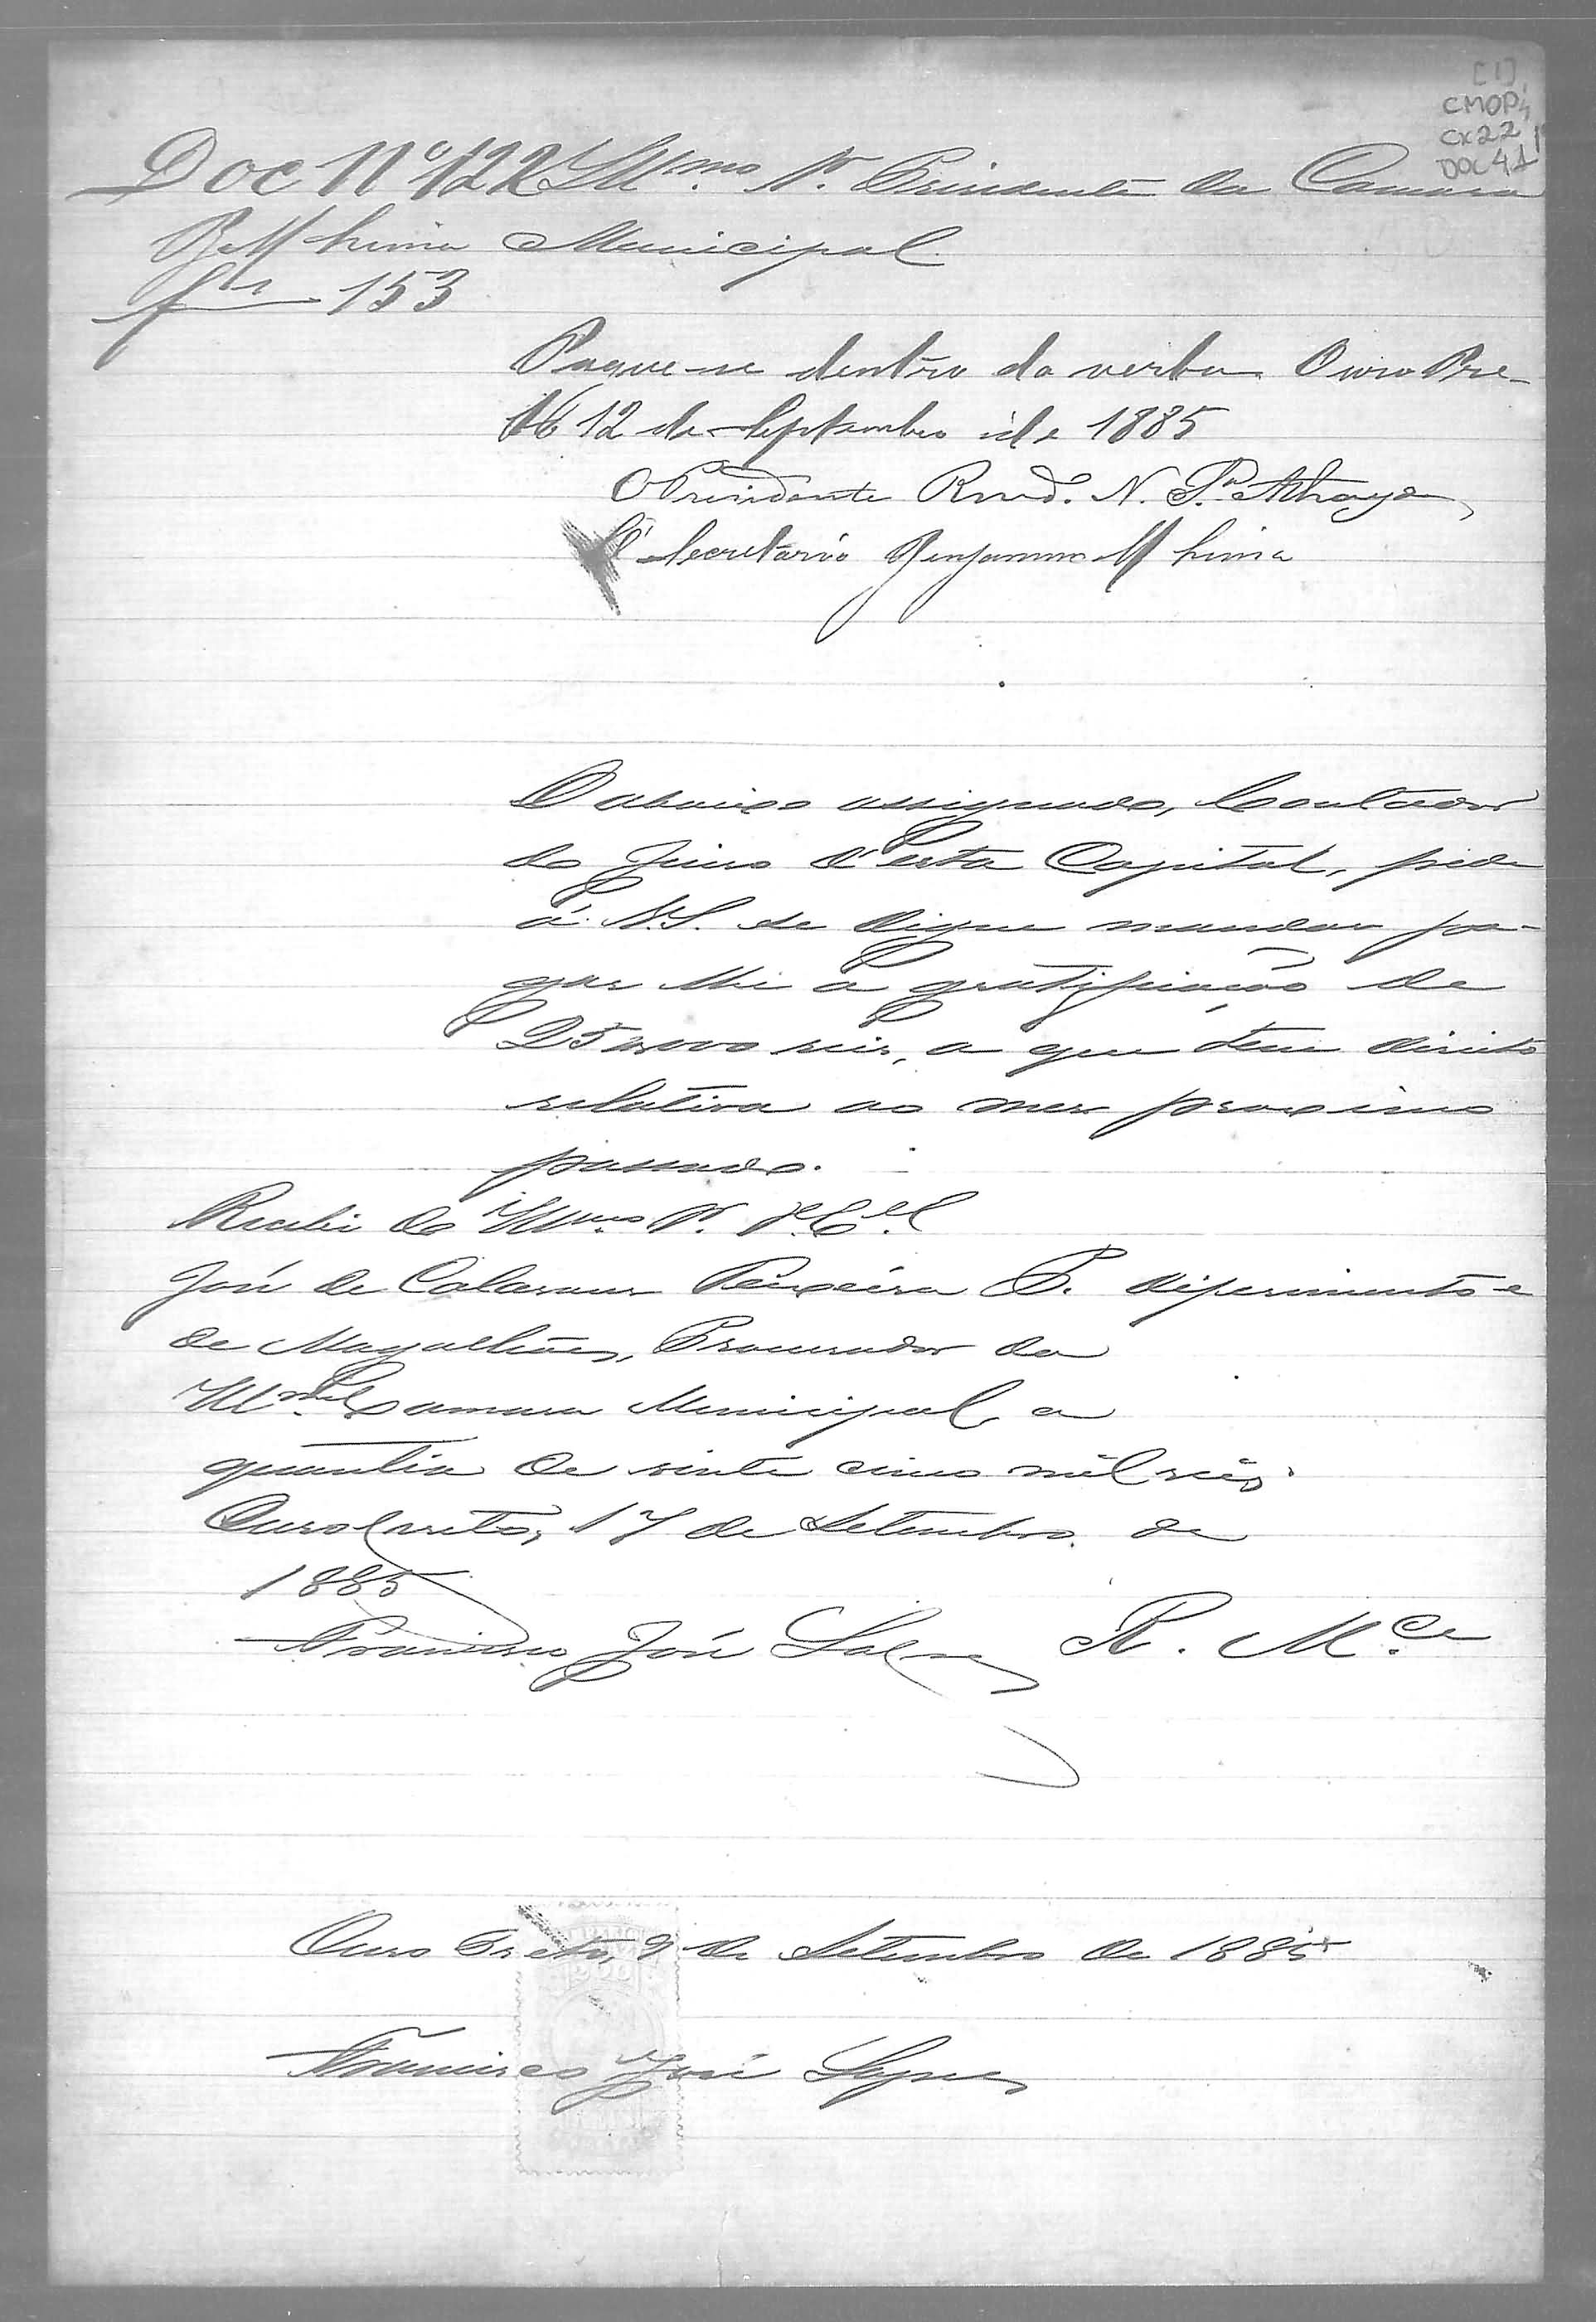 [1]
CMOP
CX22
DOC 41
Doc Nº 122 Illmo Sr. Presidente da Camara
B M Lima Municipal.
fls 153
Pague-se dentro da verba. Ouro Pre-
to 12 de Septembro de 1885
O Presidente N. Athayde
O Secretario Benjamim M Lima
O abaixo assignado, Contador
do Juizo d'esta Capital, pede
á V.S. se digne mandar pa-
gar-lhe a gratificação de
25 reis, a que tem direito
relativa ao mez proximo
passado.
Recebi do Illmo Sr.
José de Calasans Teixeira P. diferimento e
de Magalhães, Procurador da
Camara Municipal, a
quantia de vinte cinco mil reis.
Ouro Preto, 17 de Setembro de
1885
Francisco José R. Mce
Ouro Preto, 9 de Setembro de 1885
Francisco José